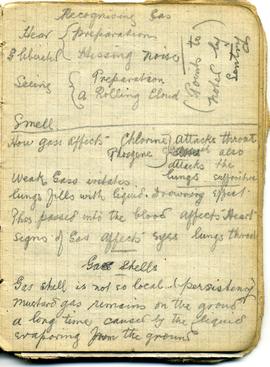 Recognising Gas
Hear { Preparations
If liberated { Hissing noise
Seeing { Preparation
a Rolling Cloud
Points to
noted by
Sentry
Smell
How gass affects Chlorine } attacks throat
Phosgene } also
attacks the
Weak Gass irritates. lungs
lungs fills with liquid. Drowning effect.
Phos passed into the blood affects Heart
Signs of Gas affects eyes lungs throat
Gas Shells
Gas shell is not so local (persistency
mustard gas remains on the ground
a long time caused by the liquid
evaporing from the ground